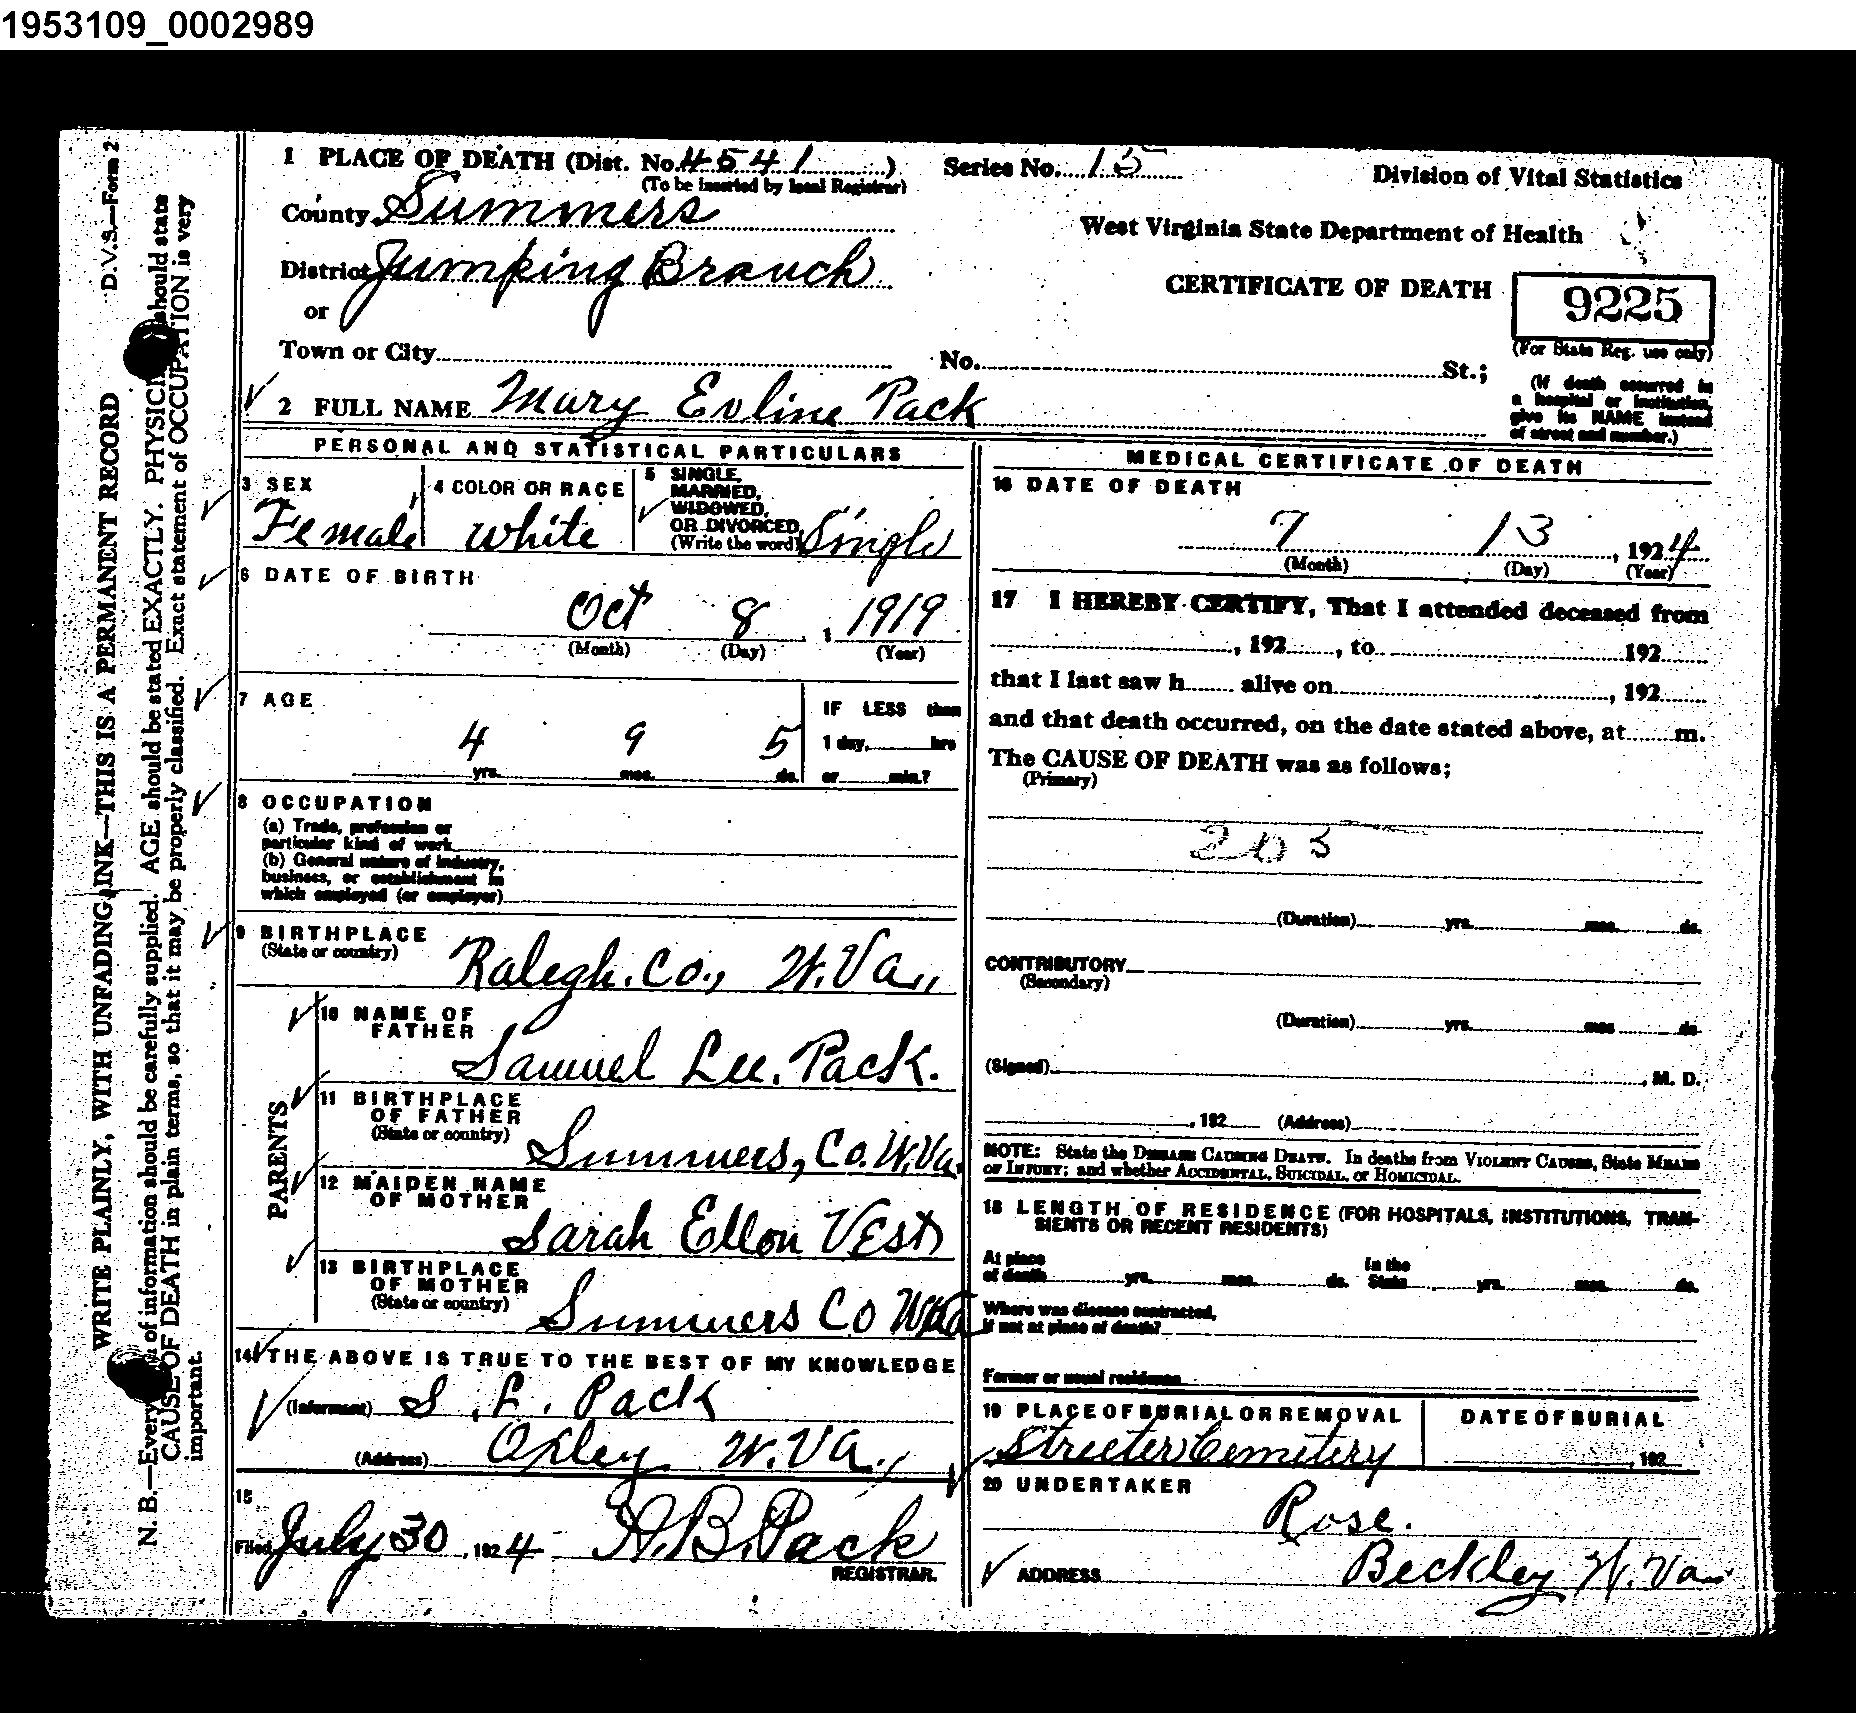 1953109_0002989
D.V.S.—Form 2
WRITE PLAINLY, WITH UNFADING INK—THIS IS A PERMANENT RECORD
N. B.—Every of information should be carefully supplied. AGE should be stated EXACTLY. PHYSICI should state
CAUSE OF DEATH in plain terms, so that it may be properly classified. Exact statement of OCCUPATION is very
important.
1 PLACE OF DEATH (Dist. No. 4541 ) Series No. 15
(To be inserted by local Registrar)
Division of Vital Statistics
County Summers
West Virginia State Department of Health
District Jumping Branch
CERTIFICATE OF DEATH
9225
or
(For State Reg. use only)
Town or City No. St.;
(If death occurred in
a hospital or institution,
give its NAME instead
of street and number.)
2 FULL NAME Mary Evline Pack
PERSONAL AND STATISTICAL PARTICULARS
3 SEX
Female
4 COLOR OR RACE
White
5 SINGLE,
MARRIED,
WIDOWED,
OR DIVORCED,
(Write the word) Single
6 DATE OF BIRTH
Oct 8, 1919
(Month) (Day) (Year)
7 AGE
4 9 5
yrs. mos. ds.
IF LESS than
1 day, hrs
or min.?
8 OCCUPATION
(a) Trade, profession or
particular kind of work
(b) General nature of industry,
business, or establishment in
which employed (or employer)
9 BIRTHPLACE
(State or country)
Ralegh. Co., W. Va.,
PARENTS
10 NAME OF
FATHER
Samuel Lee. Pack.
11 BIRTHPLACE
OF FATHER
(State or country)
Summers, Co. W. Va.
12 MAIDEN NAME
OF MOTHER
Sarah Ellon Vest
13 BIRTHPLACE
OF MOTHER
(State or country)
Summers Co W Va
14 THE ABOVE IS TRUE TO THE BEST OF MY KNOWLEDGE
(Informant) S. L. Pack
(Address) Oxley W. Va.,
15
Filed July 30, 1924 A. B. Pack
REGISTRAR.
MEDICAL CERTIFICATE OF DEATH
16 DATE OF DEATH
7 13, 1924
(Month) (Day) (Year)
17 I HEREBY CERTIFY, That I attended deceased from
, 192 , to 192
that I last saw h alive on , 192
and that death occurred, on the date stated above, at m.
The CAUSE OF DEATH was as follows;
(Primary)
205
(Duration) yrs. mos. ds.
CONTRIBUTORY
(Secondary)
(Duration) yrs. mos ds
(Signed) , M. D.
, 192 (Address)
NOTE: State the DISEASE CAUSING DEATH. In deaths from VIOLENT CAUSES, State MEANS
OF INJURY; and whether ACCIDENTAL, SUICIDAL, or HOMICIDAL.
18 LENGTH OF RESIDENCE (FOR HOSPITALS, INSTITUTIONS, TRAN-
SIENTS OR RECENT RESIDENTS)
At place
of death yrs. mos. ds. In the
State yrs. mos. ds.
Where was disease contracted,
if not at place of death?
Former or usual residence
19 PLACE OF BURIAL OR REMOVAL
Streeter Cemetery
DATE OF BURIAL
, 192
20 UNDERTAKER
Rose.
ADDRESS Beckley W. Va.